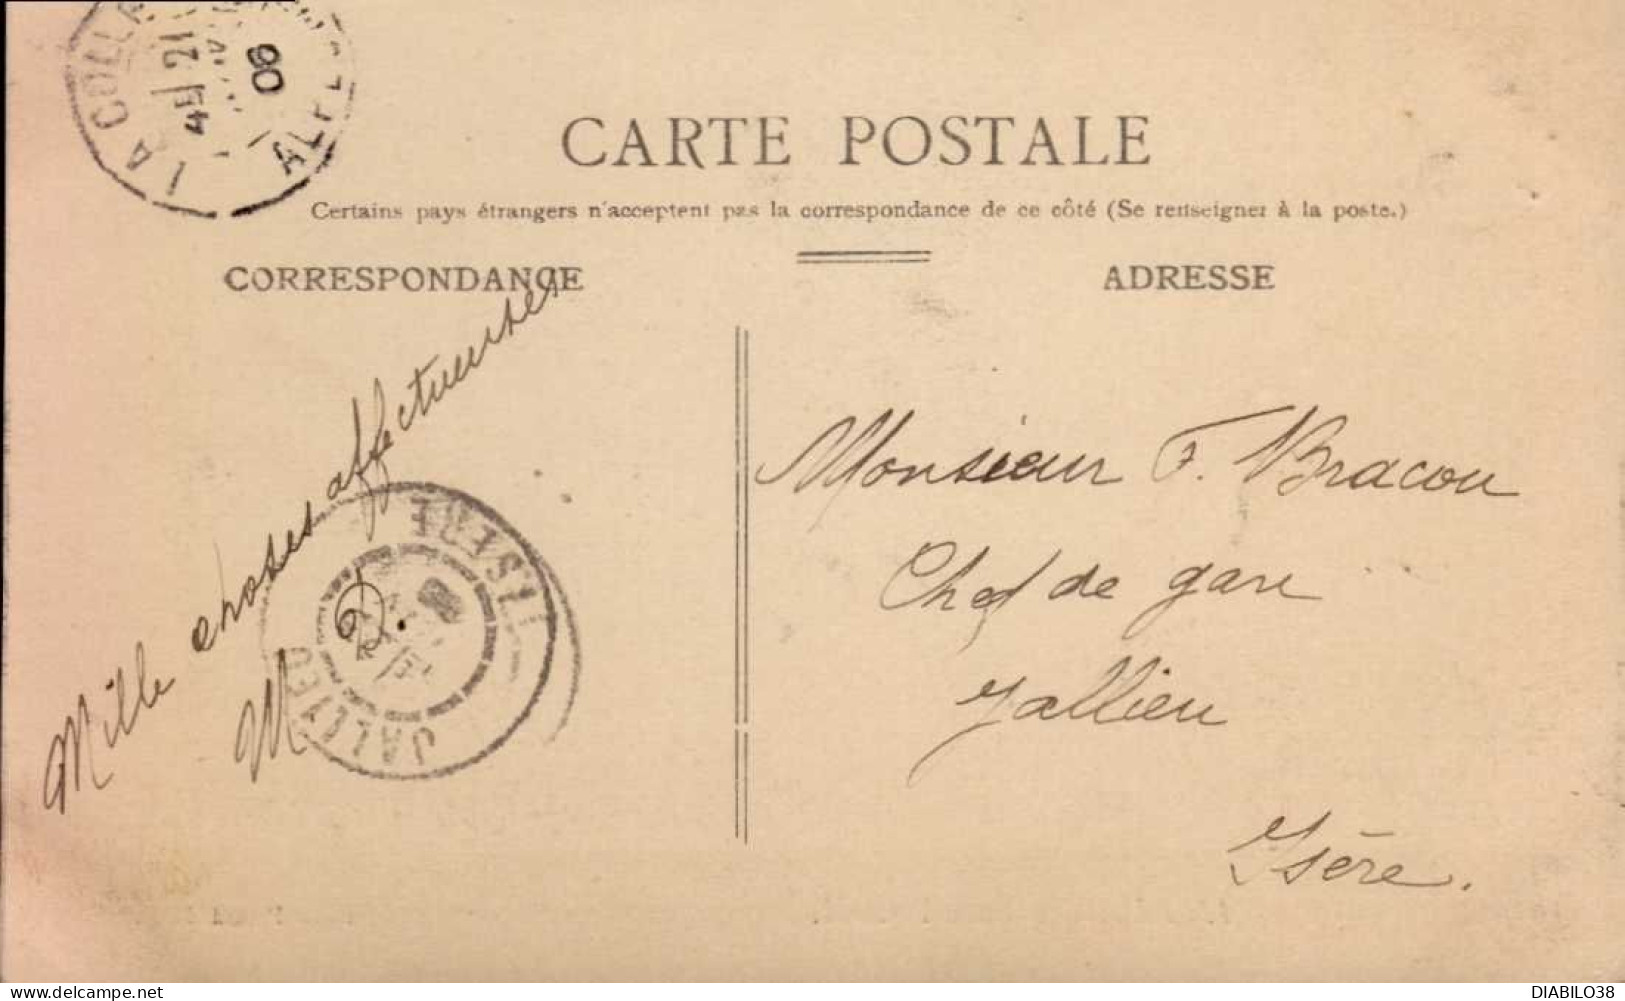 LA COLLE
ALPES
21
4E
06
CARTE POSTALE
Certains pays étrangers n'acceptent pas la correspondance de ce côté (Se renseigner à la poste.)
CORRESPONDANCE
ADRESSE
Mille choses affectueuses
M
JALLIEU
ISÈRE
Monsieur F. Bracou
Chef de gare
Jallieu
Isère.
www.delcampe.net
DIABILO38